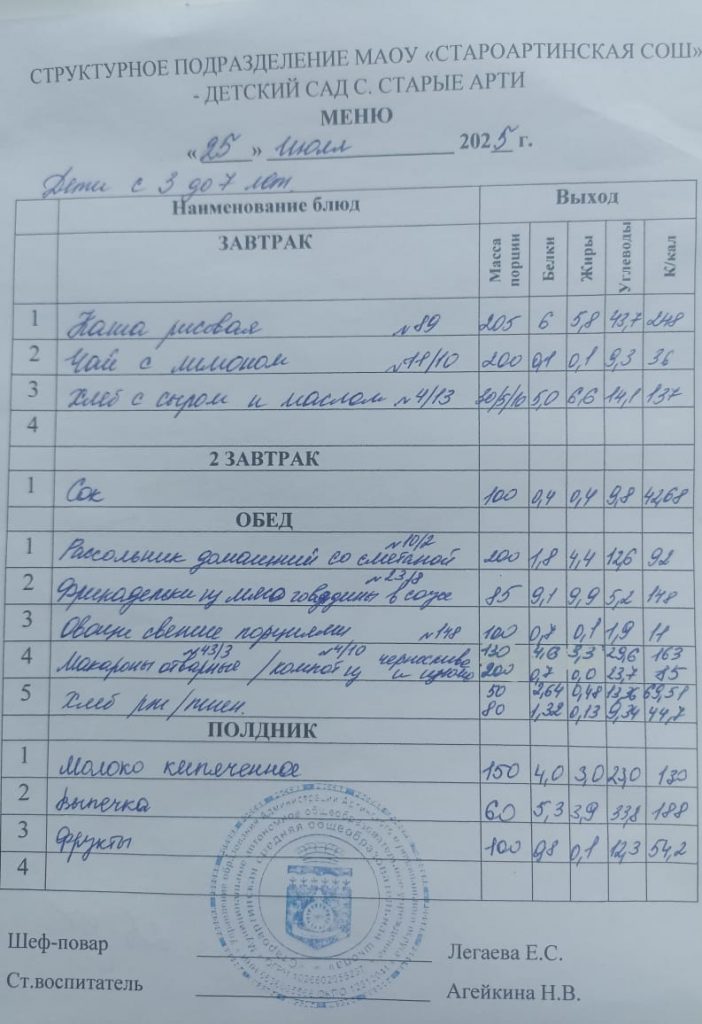 СТРУКТУРНОЕ ПОДРАЗДЕЛЕНИЕ МАОУ «СТАРОАРТИНСКАЯ СОШ»
- ДЕТСКИЙ САД С. СТАРЫЕ АРТИ
МЕНЮ
«25» июля 2025 г.
Дети с 3 до 7 лет.
Наименование блюд Выход
ЗАВТРАК Масса порции Белки Жиры Углеводы К/кал
1 Каша рисовая №89 205 6 5,8 43,7 248
2 Чай с лимоном №11/10 200 0,1 0,1 9,3 36
3 Хлеб с сыром и маслом №4/13 30/5/10 5,0 6,6 14,1 137
4
2 ЗАВТРАК
1 Сок 100 0,4 0,4 9,8 42,68
ОБЕД
1 Рассольник домашний со сметаной №10/2 200 1,8 4,4 12,6 92
2 Фрикадельки из мяса говядины в соусе №23/8 85 9,1 9,9 5,2 148
3 Овощи свежие порциями №148 100 0,7 0,1 1,9 11
4 Макароны отварные №43/3 / компот из чернослива и изюма №4/10 130 4,6 3,3 29,6 163
200 0,7 0,0 23,7 85
5 Хлеб рж/пшен. 50 2,64 0,48 13,36 69,58
80 1,32 0,13 9,34 44,7
ПОЛДНИК
1 Молоко кипяченное 150 4,0 3,0 23,0 130
2 Выпечка 60 5,3 3,9 33,8 188
3 Фрукты 100 0,8 0,1 12,3 54,2
4
Шеф-повар Легаева Е.С.
Ст.воспитатель Агейкина Н.В.